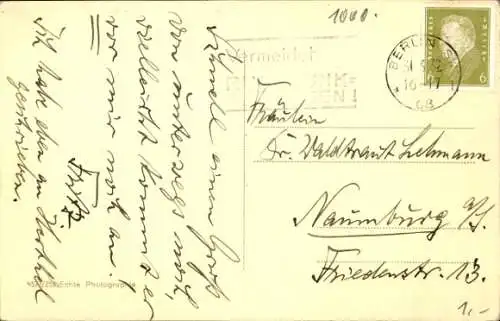 1000.
Schnell einen Gruß
von unterwegs noch,
vielleicht kommt er
vor mir noch an!
Fritz.
Ich habe eben an
geschrieben.
Vermeidet
RUNDFUNK=
STÖRUNGEN!
BERLIN
16-17
6
Fräulein
Dr. Waldtraut Lehmann
Naumburg a/S.
Friedenstr. 13.
Echte Photographie
1,-